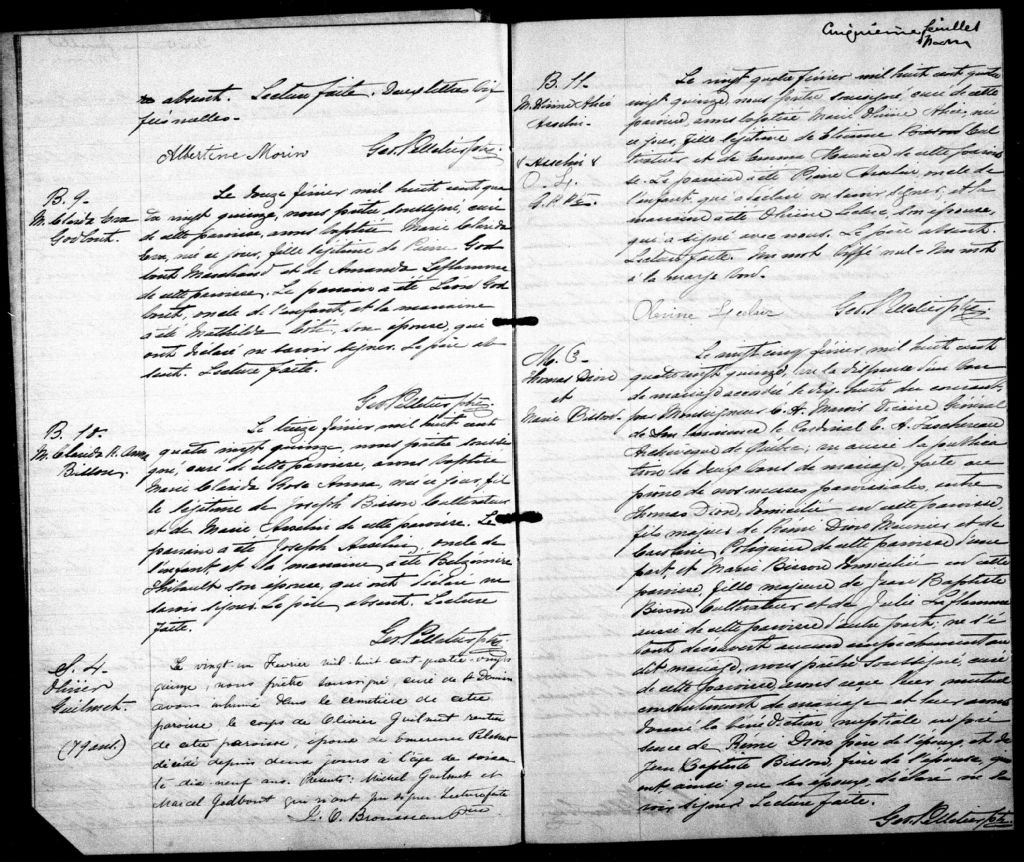 absent. Lecture faite. Deux lettres bif
fées nulles.
Albertine Morin Geo. Pelletier Ptre
B. 9.
M. Clarida
Godbout.
Le douze février mil huit cent qua
tre vingt quinze, nous prêtre soussigné, curé
de cette paroisse, avons baptisé Marie Clarida
née ce jour, fille légitime de Pierre God
bout Marchand et de Amanda Laflamme
de cette paroisse. Le parrain a été Léon God
bout, oncle de l'enfant, et la marraine
a été Mathilda Coté, son épouse, qui
ont déclaré ne savoir signer. Le père ab
sent. Lecture faite.
Geo. Pelletier Ptre
B. 10.
M. Clarida R. Anna
Bisson.
Le treize février mil huit cent
quatre vingt quinze, nous prêtre soussi
gné, curé de cette paroisse, avons baptisé
Marie Clarida Rose Anna, née ce jour, fil
le légitime de Joseph Bisson Cultivateur
et de Marie Asselin de cette paroisse. Le
parrain a été Joseph Asselin, oncle de
l'enfant et la marraine a été Belzémire
Thibault son épouse, qui ont déclaré ne
savoir signer. Le père absent. Lecture
faite.
Geo. Pelletier Ptre
S. 4.
Olivier
Guilmet.
(79 ans)
Le vingt un Février mil huit cent quatre-vingt
quinze, nous prêtre soussigné, curé de St Damien
avons inhumé dans le cimetière de cette
paroisse le corps de Olivier Guilmet rentier
de cette paroisse, époux de Emerence
décédé depuis deux jours à l'âge de soixan
te dix neuf ans. Présents: Michel Guilmet et
Marcel Godbout qui n'ont pu signer. Lecture faite
J. O. Brousseau Ptre
Cinquième feuillet
B. 11.
M. Divine Alice
Asselin.
Le vingt quatre février mil huit cent quatre
vingt quinze, nous prêtre soussigné, curé de cette
paroisse, avons baptisé Marie Alice, née
ce jour, fille légitime de Etienne Cul
tivateur et de Emma de cette parois
se. Le parrain a été Pierre Asselin, oncle de
l'enfant qui a déclaré ne savoir signer, et la
marraine a été son épouse,
qui a signé avec nous. Le père absent.
Lecture faite. Un mot biffé nul. Un mot
à la marge bon.
Geo. Pelletier Ptre
Thomas Dion
et
Marie Bisson.
Le vingt cinq février mil huit cent
quatre vingt quinze, vu la dispense d'un ban
de mariage accordée le dix huit du courant
par Monseigneur C. A. Marois Vicaire Général
de Son Eminence le Cardinal E. A. Taschereau
Archevêque de Québec; vu aussi la publica
tion de deux bans de mariage, faite au
prône de nos messes paroissiales, entre
Thomas Dion, domicilié en cette paroisse,
fils majeur de Rémi Dion Meunier et de
Caroline Poliquin de cette paroisse d'une
part, et Marie Bisson domiciliée en cette
paroisse, fille majeure de Jean Baptiste
Bisson Cultivateur et de Julie Laflamme
aussi de cette paroisse d'autre part; ne s'é
tant découvert aucun empêchement au
dit mariage, nous prêtre soussigné, curé
de cette paroisse, avons reçu leur mutuel
consentement de mariage et leur avons
donné la bénédiction nuptiale en pré
sence de Rémi Dion père de l'époux, et de
Jean Baptiste Bisson, père de l'épouse, qui
ont ainsi que les époux, déclaré ne sa
voir signer. Lecture faite.
Geo. Pelletier Ptre